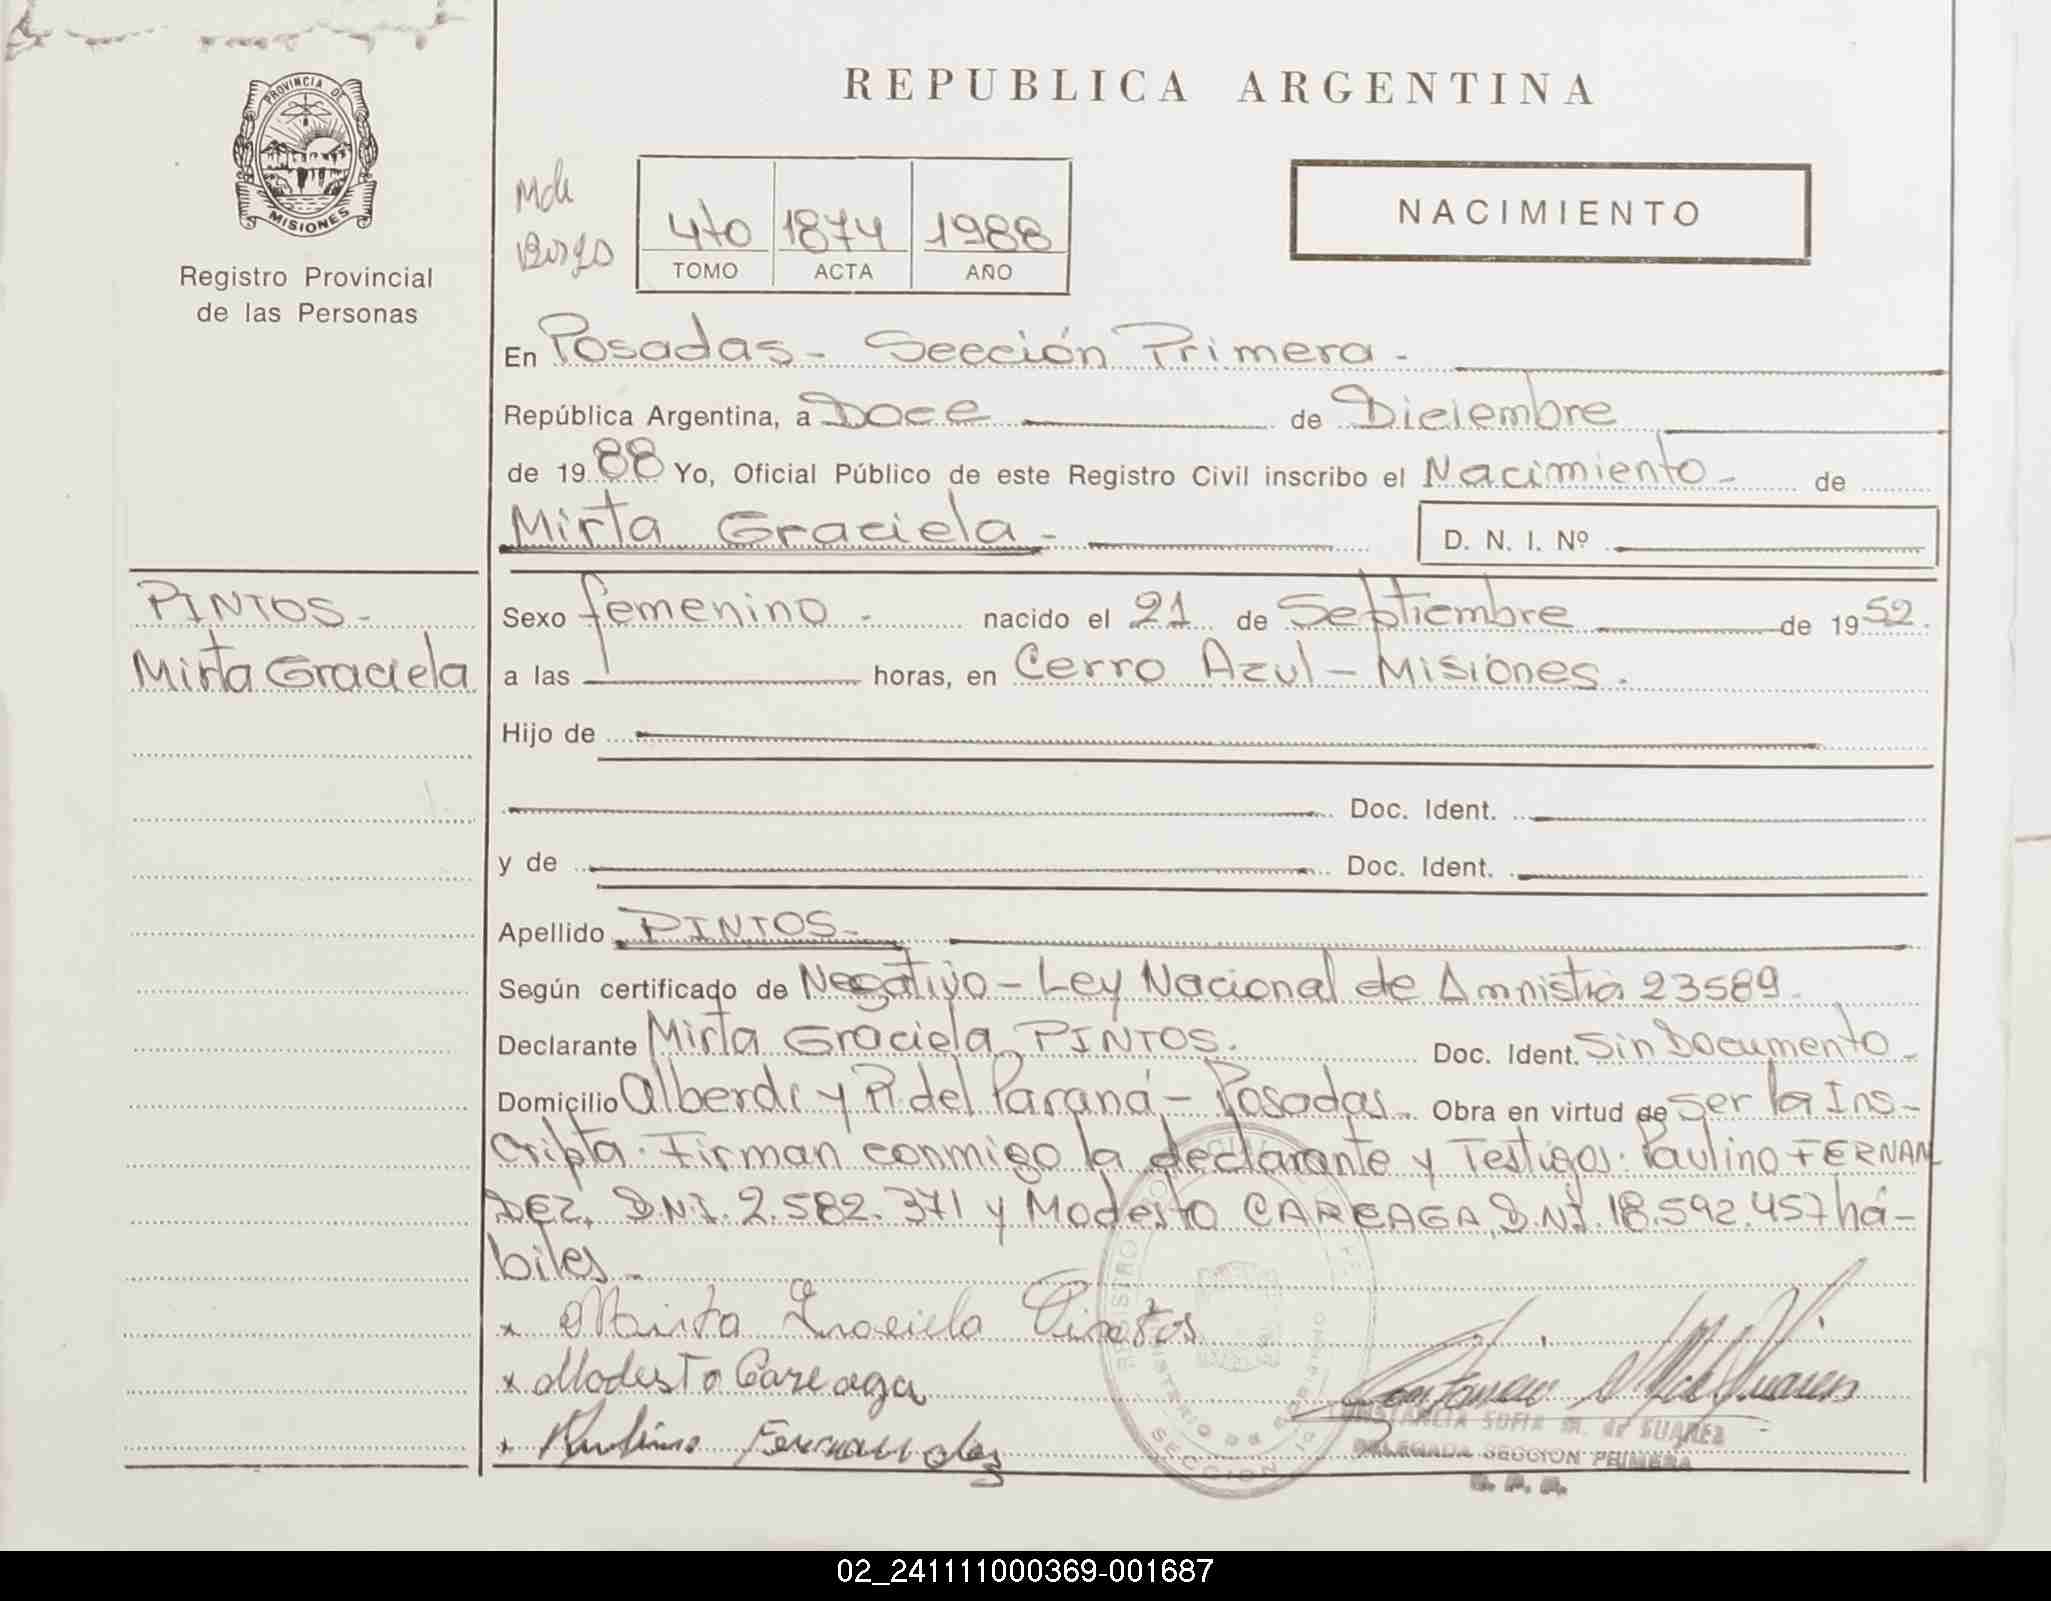 REPUBLICA ARGENTINA
PROVINCIA DE
MISIONES
Registro Provincial
de las Personas
4to 1874 1988
TOMO ACTA AÑO
NACIMIENTO
En Posadas - Sección Primera -
República Argentina, a Doce de Diciembre
de 1988 Yo, Oficial Público de este Registro Civil inscribo el Nacimiento - de
Mirta Graciela -
D. N. I. Nº
PINTOS -
Mirta Graciela
Sexo femenino - nacido el 21 de Septiembre de 1952.
a las horas, en Cerro Azul - Misiones.
Hijo de
Doc. Ident.
y de Doc. Ident.
Apellido PINTOS -
Según certificado de Negativo - Ley Nacional de Amnistia 23589
Declarante Mirta Graciela PINTOS. Doc. Ident. Sin Documento -
Domicilio Alberdi y P. del Paraná - Posadas. Obra en virtud de ser la Ins-
cripta. Firman conmigo la declarante y Testigos: Paulino FERNAN
DEZ, D.N.I. 2.582.371 y Modesto CAREAGA, D.N.I. 18.592.457 há-
biles -
x Mirta Graciela Pintos
x Modesto Careaga
x Paulino Fernandez
CONSTANCIA SOFIA M. de SUAREZ
DELEGADA SECCION PRIMERA
R. P. P.
02_241111000369-001687